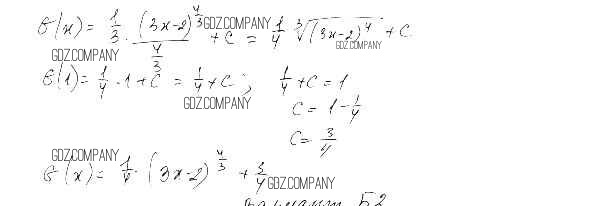 G(x) = 1/3 · (3x-2)^(4/3) / (4/3) + C = 1/4 ∛(3x-2)^4 + C
GDZ.COMPANY
GDZ.COMPANY
GDZ.COMPANY
G(1) = 1/4 · 1 + C = 1/4 + C; 1/4 + C = 1
GDZ.COMPANY
C = 1 - 1/4
C = 3/4
GDZ.COMPANY
G(x) = 1/4 · (3x-2)^(4/3) + 3/4
GDZ.COMPANY
Вариант Б2